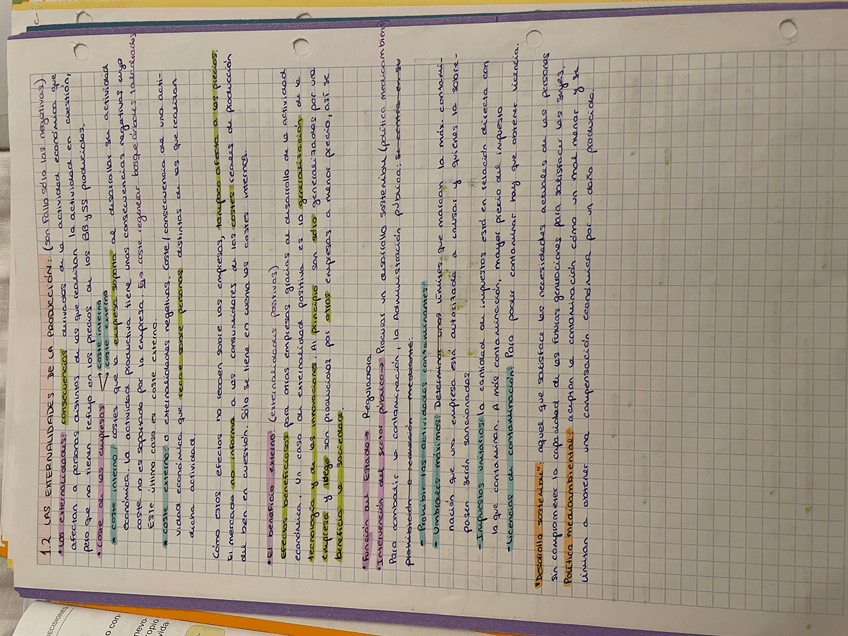 1.2 LAS EXTERNALIDADES DE LA PRODUCCIÓN: (son fallo sólo las negativas)
• Las externalidades: consecuencias derivadas de la actividad económica que
afectan a personas distintas de las que realizan la actividad en cuestión,
pero que no tienen reflejo en los precios de los BB y SS producidos.
• Coste de las empresas → coste interno
→ coste externo
* coste interno: costes que la empresa soporta al desarrollar su actividad
económica. La actividad productiva tiene unas consecuencias negativas cuyo
coste no es soportado por la empresa. Ej: coste regenerar bosque árboles talados
Este último caso es este externo.
* coste externo: o externalidades negativas. Coste/consecuencia de una acti-
vidad económica que recae sobre personas distintas de las que realizan
dicha actividad.
Cómo estos efectos no recaen sobre las empresas, tampoco afecta a los precios.
El mercado no informa a los consumidores de los costes reales de producción
del bien en cuestión. Sólo se tiene en cuenta los costes internos.
• El beneficio externo: (externalidades positivas)
Efectos beneficiosos para otras empresas gracias al desarrollo de la actividad
económica. Un caso de externalidad positiva es la generalización de la
tecnología y de las innovaciones. Al principio son sólo generalizadas por una
empresa y luego son producidos por otras empresas a menor precio, así se
beneficia la sociedad.
• Función del Estado → Reguladora
• Intervención del sector público → Procurar un desarrollo sostenible (política medioambiental)
Para combatir la contaminación, la Administración pública: se centra en su
prohibición o reducción mediante:
- Prohibir las actividades contaminantes
- Umbrales máximos: Determinar unos límites que marcan la máx. contami-
nación que una empresa está autorizada a causar y quienes la sobre-
pasen serán sancionadas.
- Impuestos variables: la cantidad de impuestos está en relación directa con
lo que contaminan. A más contaminación, mayor precio del impuesto
- Licencias de contaminación: Para poder contaminar hay que obtener licencia.
"Desarrollo sostenible": aquel que satisface las necesidades actuales de las personas
sin comprometer la capacidad de las futuras generaciones para satisfacer las suyas.
Política medioambiental: aceptan la contaminación cómo un mal menor y se
limitan a obtener una compensación económica por un daño producido.